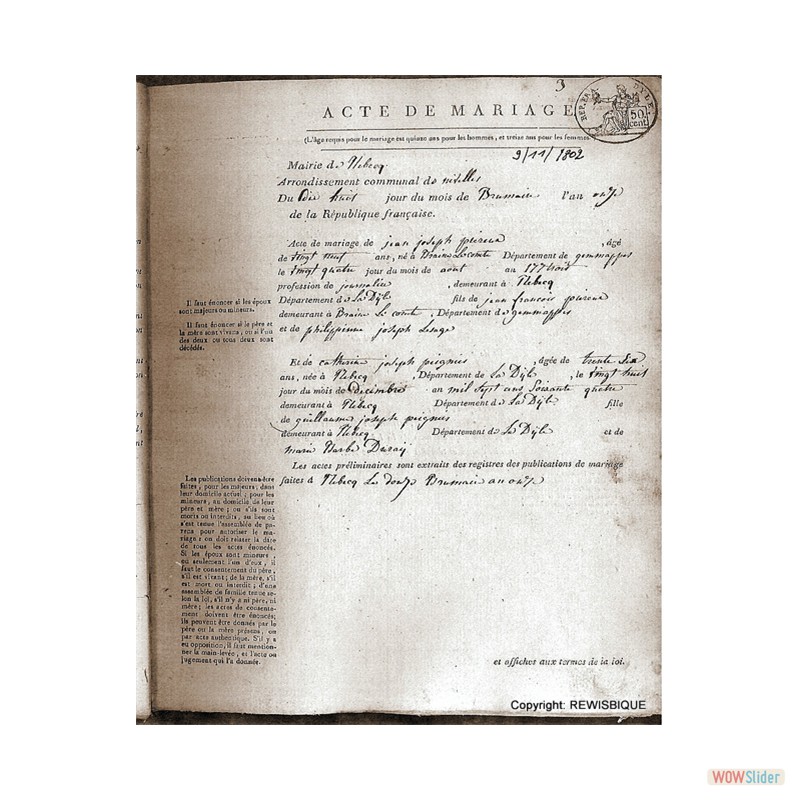 3
ACTE DE MARIAGE
REP. FRA DYLE
50 cent.
(L'âge requis pour le mariage est quinze ans pour les hommes, et treize ans pour les femmes.
9/11/1802
Mairie de Rebecq
Arrondissement communal de nivelles
Du dix huit jour du mois de Brumaire l'an onze
de la République française.
Acte de mariage de jean joseph poireux, âgé
de vingt neuf ans, né à Braine Le comte Département de gemmappes
le vingt quatre jour du mois de aout an 177
profession de journalier, demeurant à Rebecq
Département de La Dÿle fils de jean francois poireux
demeurant à Braine Le comte, Département de gemmappes
et de philippinne joseph Lenge
Et de catherine joseph peignies, âgée de trente Six
ans, née à Rebecq Département de La Dÿle, le vingt huit
jour du mois de Decembre an mil sept ans Soixante quatre
demeurant à Rebecq Département de La Dÿle fille
de guillaume joseph peignies
demeurant à Rebecq Département de La Dÿle et de
marie Barbe
Les actes préliminaires sont extraits des registres des publications de mariage
faites à Rebecq Le douze Brumaire an onze
et affiches aux termes de la loi.
Il faut énoncer si les époux
sont majeurs ou mineurs.
Il faut énoncer si le père et
la mère sont vivans, ou si l'un
des deux ou tous deux sont
décédés.
Les publications doivent être
faites, pour les majeurs, dans
leur domicile actuel; pour les
mineurs, au domicile de leur
père et mère; ou s'ils sont
morts ou interdits, au lieu où
s'est tenue l'assemblée de pa-
rens pour autoriser le ma-
riage: on doit relaser la date
de tous les actes énoncés.
Si les époux sont mineurs,
ou seulement l'un d'eux, il
faut le consentement du père,
s'il est vivant; de la mère, s'il
est mort ou interdit; d'une
assemblée de famille tenue se-
lon la loi, s'il n'y a ni père, ni
mère; les actes de consente-
ment doivent être énoncés;
ils peuvent être donnés par le
père ou la mère présens, ou
par acte authentique. S'il y a
eu opposition, il faut mention-
ner la main-levée, et l'acte ou
jugement qui l'a donnée.
Copyright: REWISBIQUE
WOWSlider